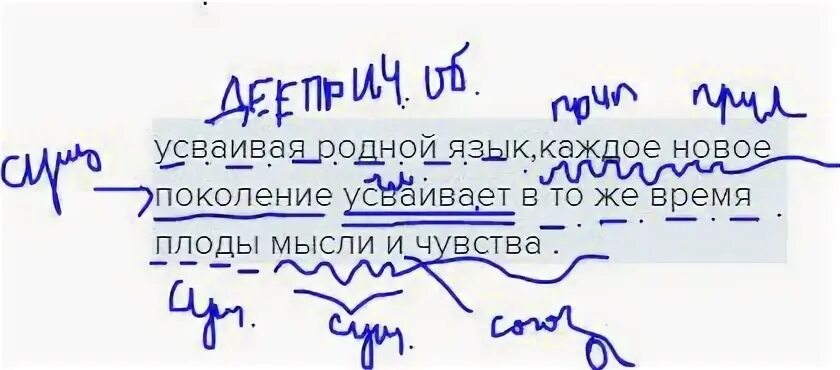 ДЕЕПРИЧ. об.
прил
усваивая родной язык,каждое новое
сущ
гл
поколение усваивает в то же время
плоды мысли и чувства .
сущ.
сущ.
союз